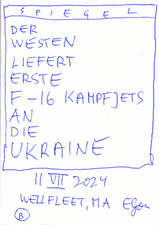 SPIEGEL
DER
WESTEN
LIEFERT
ERSTE
F-16 KAMPFJETS
AN
DIE
UKRAINE
11 VII 2024
WELLFLEET, MA Egon
B